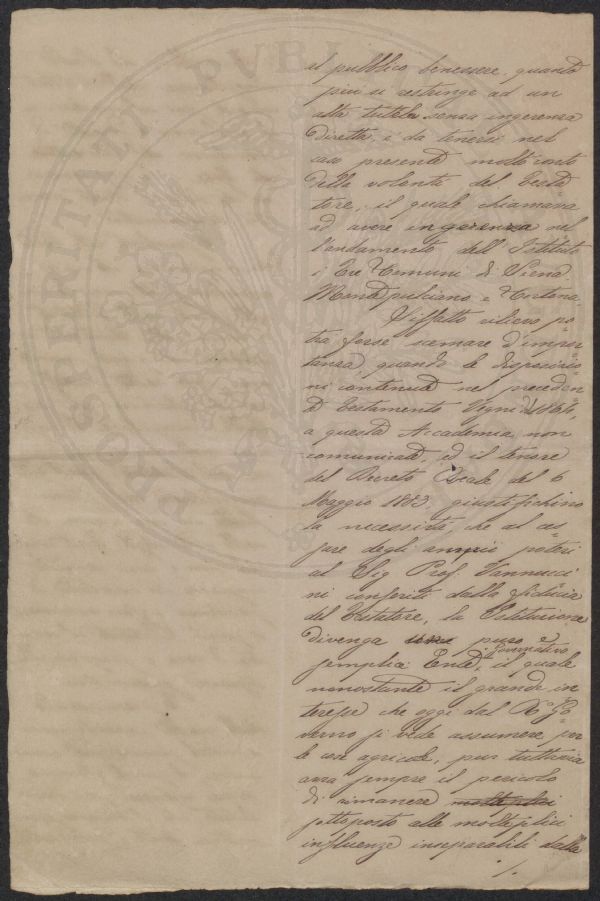 PROSPERITATI PVBL
al pubblico benessere, quanto
più si restringe ad un'
alta tutela senza ingerenza
diretta, è da tenersi nel
caso presente molto conto
della volontà del Testa=
tore, il quale chiamava
ad avere ingerenza nel
l'andamento dell'Istituto
i tre Comuni di Siena
Montepulciano e Cortona.
Siffatto rilievo po=
trà forse scemare d'impor
tanza quando le disposizio=
ni contenute nel preceden
te testamento Vegni
a questa Accademia non
comunicate, ed il tenore
del Decreto Reale del 6
Maggio 1883, giustifichino
la necessità, che al ces=
sare degli ampii poteri
al Sig Prof. Vannucci
ni conferiti dalla fiducia
del Testatore, la Istituzione
divenga puro e
semplice Ente Governativo, il quale
nonostante il grande in
teresse che oggi dal R.° Go=
verno si vede assumere per
le cose agricole, pur tuttavia
avrà sempre il pericolo
di rimanere
sottoposto alle molteplici
influenze inseparabili dalla
./.